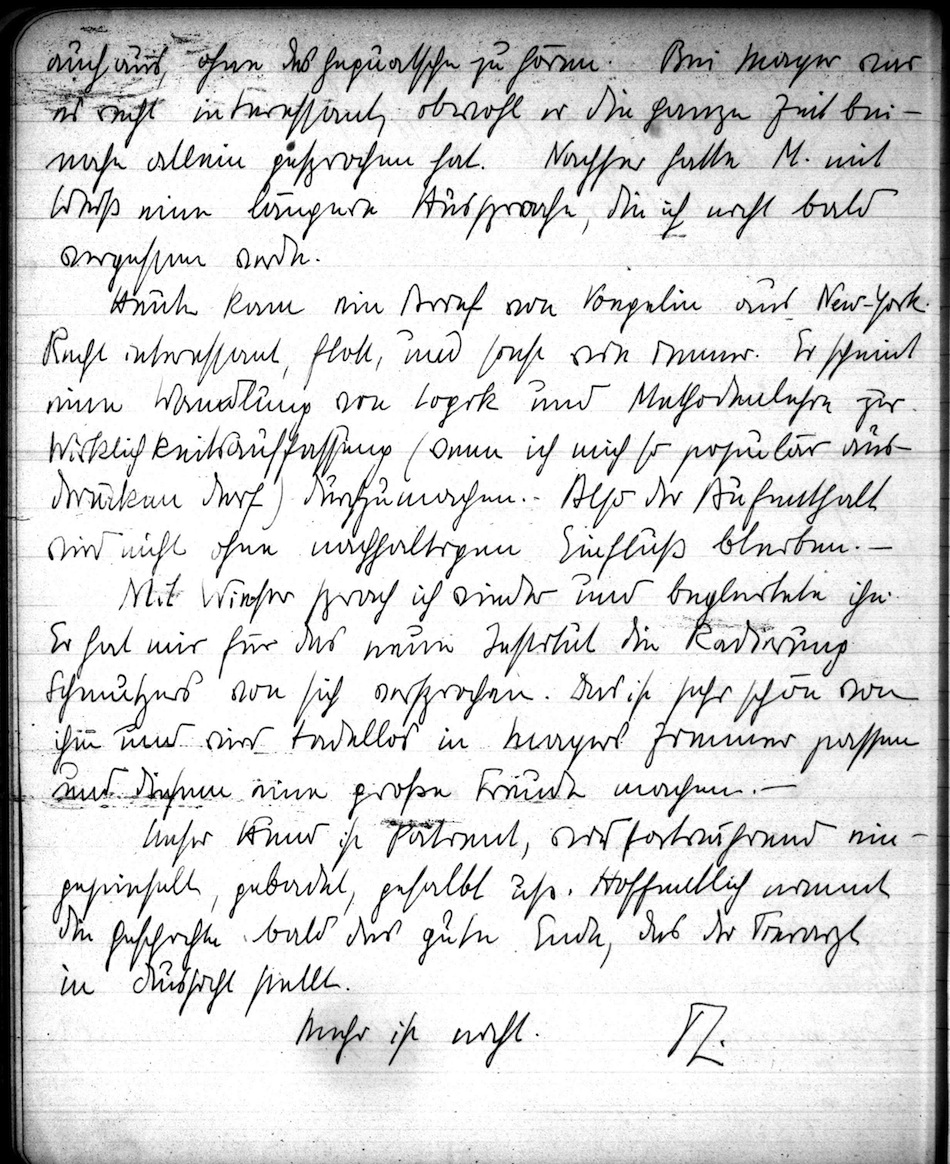 auch aus, ohne das Gequatsche zu hören. Bei Mayer war
es recht interessant, obwohl er die ganze Zeit bei-
nahe allein gesprochen hat. Nachher hatte M. mit
Weiß eine längere Aussprache, die ich nicht bald
vergessen werde.
Heute kam ein Brief von Voegelin aus New-York.
Recht interessant, flott, und sonst wie immer. Er scheint
eine Wandlung von Logik und Methodenlehre zur
Wirklichkeitsauffassung (wenn ich mich so populär aus-
drücken darf) durchzumachen.- Also der Aufenthalt
wird nicht ohne nachhaltigen Einfluß bleiben.—
Mit Wieser sprach ich wieder und begleitete ihn.
Er hat mir für das neue Institut die Radierung
Schmutzers von sich versprochen. Das ist sehr schön von
ihm und wird tadellos in Mayers Zimmer passen
und diesem eine große Freude machen.—
Unser Hund ist Patient, wird fortwährend ein-
gepinselt, gebadet, gesalbt usf. Hoffentlich nimmt
die Geschichte bald das gute Ende, das der Tierarzt
in Aussicht stellt.
Mehr ist nicht.